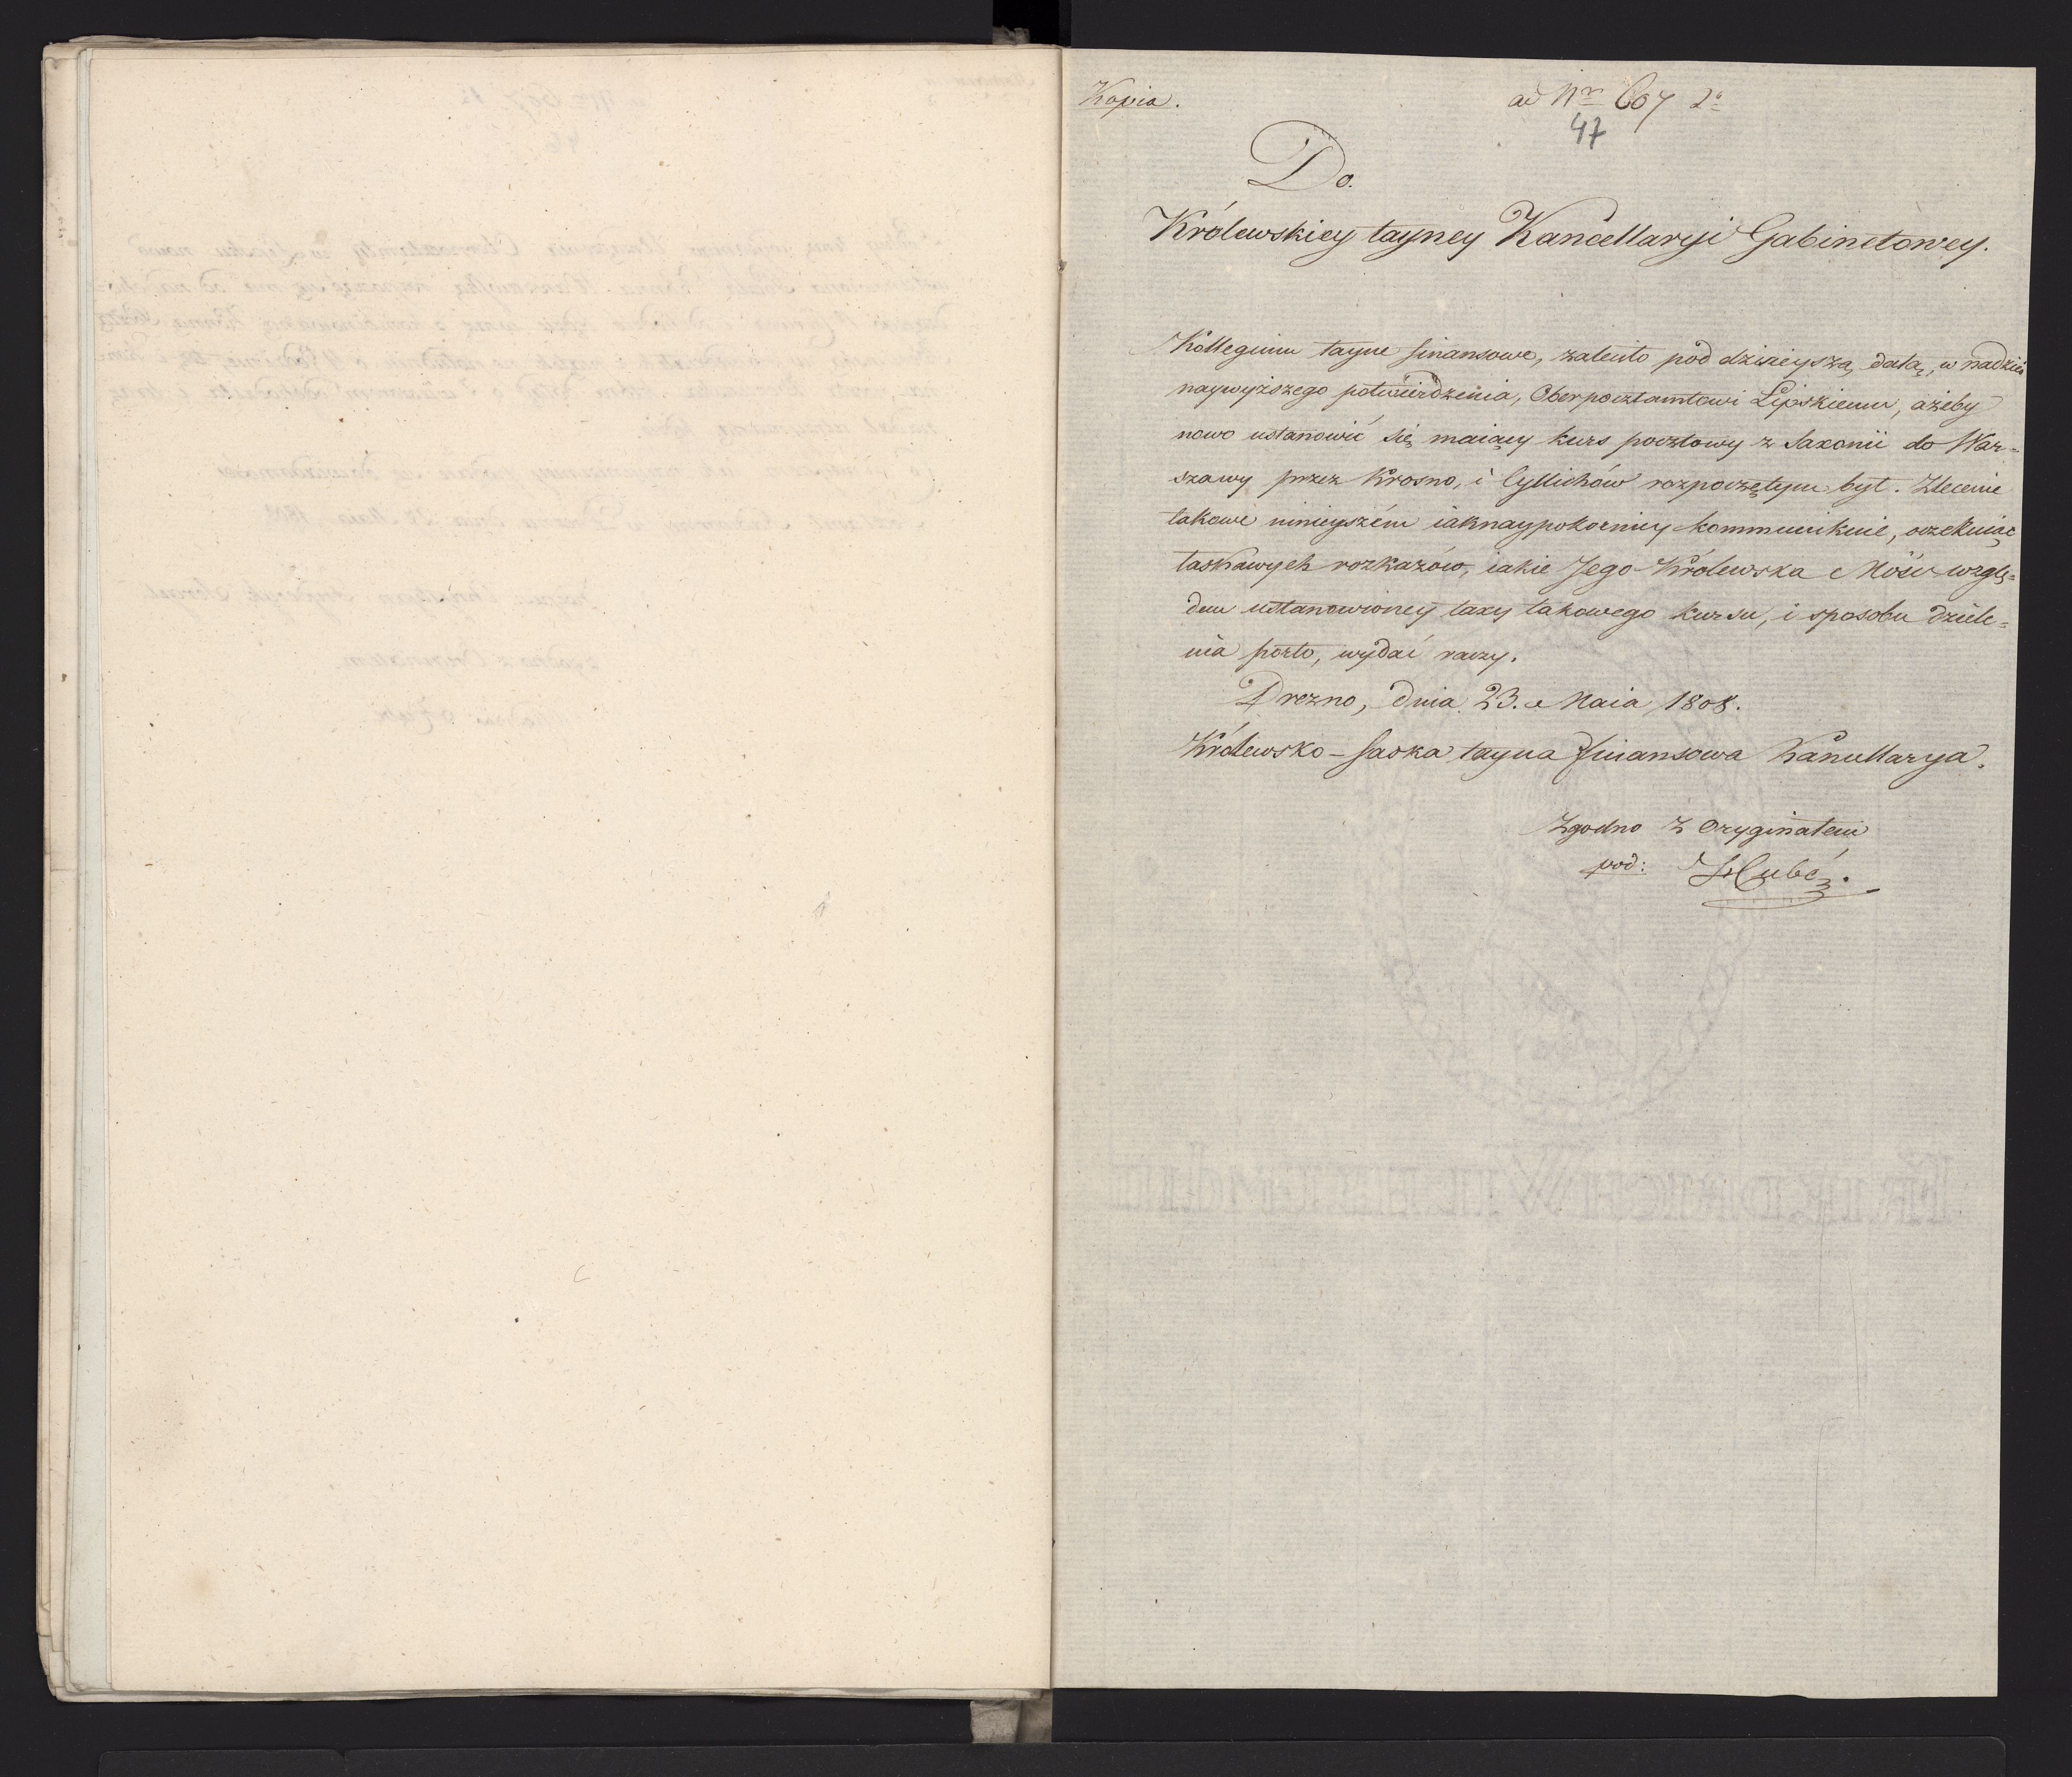 Kopia.
ad Nrn 607 2o
47
Do.
Królewskiey tayney Kancellaryi Gabinetowey.
Kollegium tayne finansowe, zaleciło pod dzisieyszą datą, w nadziei
naywyższego potwierdzenia, Oberpocztamtowi Lipskiemu, ażeby
nowo ustanowić się maiący kurs pocztowy z Saxonii do War=
szawy przez Krosno, i Cyllichów rozpoczętym był. Zlecenie
takowe ninieyszém iaknaypokorniey kommunikuie, oczekuiąc
łaskawych rozkazów, iakie Jego Królewska Mość wzglę=
dem ustanowioney taxy takowego kursu, i sposobu dziele=
nia porto, wydać raczy.
Drezno, dnia 23. Maia 1808.
Królewsko-Saska tayna Finansowa Kancellarya.
Zgodno z Oryginałem
pod: